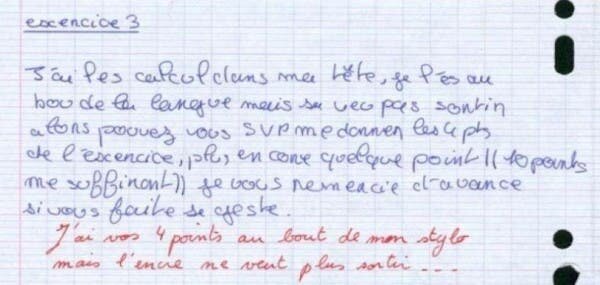 excercice 3
J'ai les calcul dans ma tête, je l'es au
bou de la langue mais sa veu pas sortir
alors pouvez vous SVP me donner les 4 pts
de l'excercice, plus en core quelque point (( 10 points
me suffiront)) je vous remercie d'avance
si vous faite se geste.
J'ai vos 4 points au bout de mon stylo
mais l'encre ne veut plus sortir ...